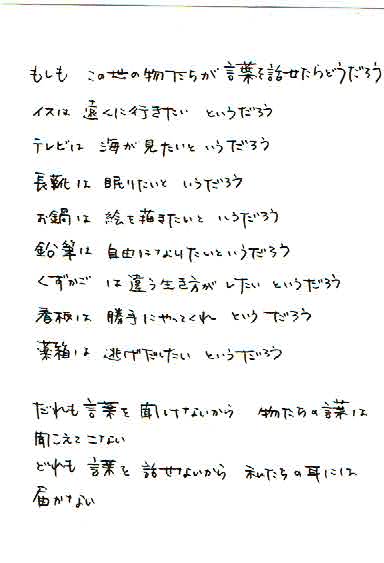 もしも この世の物たちが言葉を話せたらどうだろう
イスは 遠くに行きたい というだろう
テレビは 海が見たいと いうだろう
長靴は 眠りたいと いうだろう
お鍋は 絵を描きたいと いうだろう
鉛筆は 自由になりたいというだろう
くずかご は違う生き方が したい というだろう
看板は 勝手にやってくれ という だろう
薬箱は 逃げだしたい というだろう
だれも言葉を 聞けないから 物たちの言葉は
聞こえてこない
どれも 言葉を 話せないから 私たちの耳には
届かない